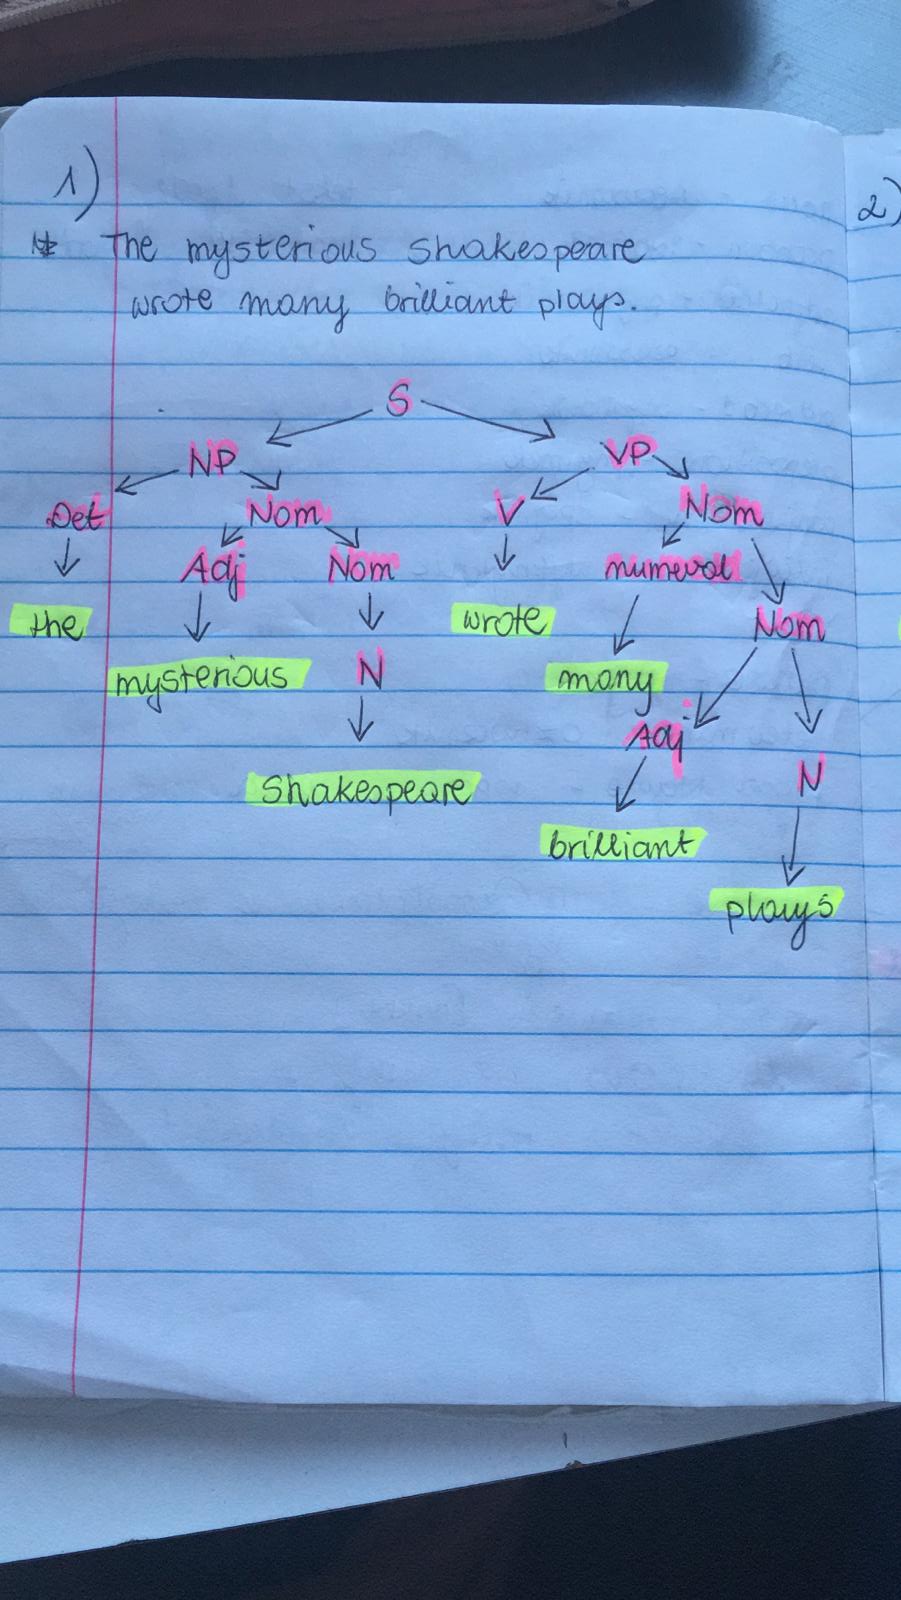 1)
2)
The mysterious Shakespeare
wrote many brilliant plays.
S
NP VP
Det Nom V Nom
Adj Nom numeral
the wrote Nom
mysterious N many
Adj
Shakespeare N
brilliant
plays